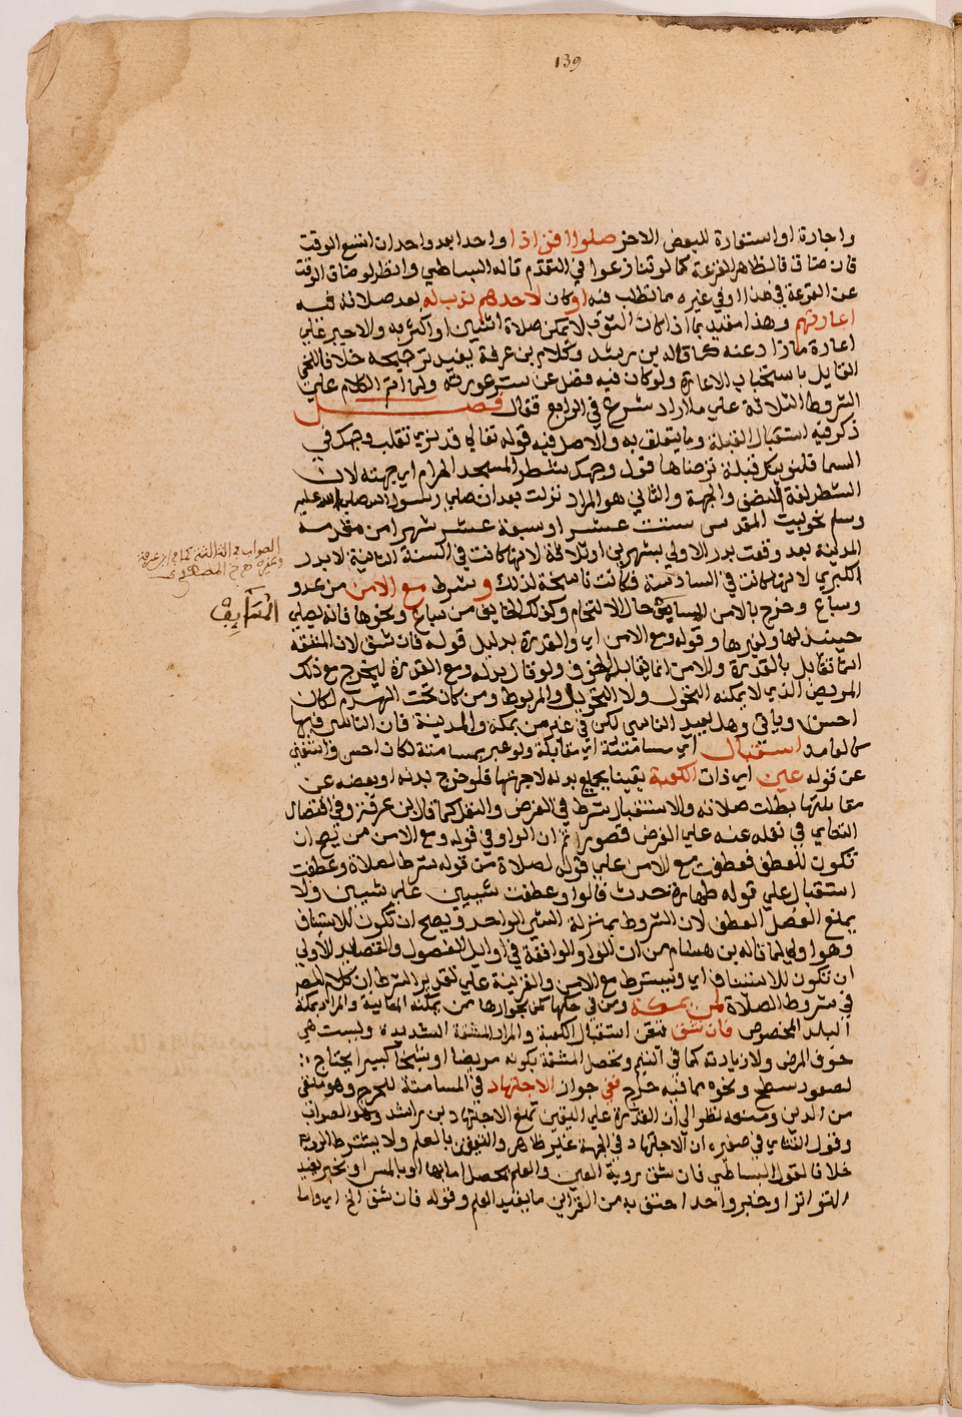 139
واجارة او استعارة للبعض الاخر صلوا افذاذا واحدا بعد واحد ان اتسع الوقت
فان ضاق فالظاهر القرعة كما لو تنازعوا في التقدم قاله البساطي وانظر لو ضاق الوقت
عن القرعة في هذا او في غيره مما تطلب فيه او كان لاحدهم ندب له بعد صلاته فيه
اعارتهم وهذا مقيد بما اذا كان الثوب لا يمكن صلاة اثنين او اكثر به والا جبر على
اعارة ما زاد عنه كما قاله بن رشد وكلام بن عرفة يفيد ترجيحه خلافا للخمي
القايل باستحباب الاعارة ولو كان فيه فضل عن ستر عورته ولما اتم الكلام على
الشروط الثلاثة على ما اراد شرع في الرابع فقال فصل
ذكر فيه استقبال القبلة وما يتعلق به والاصل فيه قوله تعالى قد نرى تقلب وجهك في
السما فلنولينك قبلة ترضاها فول وجهك شطر المسجد الحرام اي جهته لان
الشطر لغة النصف والجهة والثاني هو المراد نزلت بعد ان صلى رسول الله صلى الله عليه
وسلم نحو بيت المقدس ستت عشر او سبعة عشر شهرا من مقدمه
المدينة بعد وقعت بدر الاولى بشهرين او ثلاثة لانها كانت في السنة الثانية لا بدر
الكبرى لانها كانت في السادسة فكانت ناسخة لذلك و شرط مع الامن من عدو
وسباع وخرج بالامن المسايفي حال الالتحام وكذلك الخايف من سباع ونحوها فانه يصلي
حينئذ لها ولغيرها وقوله ومع الامن اي والقدرة بدليل قوله فان شق لان المشقة
انما تقابل بالقدرة والامن انما يقابل الخوف ولو قال بدله ومع القدرة ليخرج مع ذلك
المريض الذي لا يمكنه التحول ولا التحويل والمربوط ومن كان تحت الهدم لكان
احسن وياتي وهل يعيد الناسي لكن في غير من بمكة والمدينة فان الناسي فيها
كالعامد استقبال اي مسامتة اي مقابلة ولو عبر بمسامتة لكان احسن واستغنى
عن قوله عين اي ذات الكعبة يقينا بجميع بدنه لا جهتها فلو خرج بدنه او بعضه عن
مقابلتها بطلت صلاته والاستقبال شرط في الفرض والنفل كما قال ابن عرفة وفي اقتصار
التتاي في نقله عنه على الفرض قصور ثم ان الواو في قوله ومع الامن من يصح ان
تكون للعطف فعطفت مع الامن على قوله لصلاة من قوله شرط لصلاة وعطفت
استقبال على قوله طهارة حدث فالواو عطفت شيين على شيين ولا
يمنع الفصل العطف لان الشروط بمنزلة الشي الواحد ويصح ان تكون للاستيناف
وهو اولى لما قاله بن هشام من ان الواو الواقعة في اوايل الفصول والقصايد الاولى
ان تكون للاستيناف اي ويشترط مع الامن والقرينة على تقدير الشرط ان كلام المصنف
في شروط الصلاة لمن بمكة ومن في حكمها كمن بجوارها ممن يمكنه المعاينة والمراد بمكة
البلد المخصوص فان شق يعني استقبال الكعبة والمراد المشقة الشديدة وليست هي
خوف المرض ولا زيادته كما في التيمم وتحصل المشقة بكونه مريضا او شيخا كبيرا يحتاج
لصعود سطح ونحوه مما فيه حرج ففي جواز الاجتهاد في المسامتة للحرج وهو منفي
من الدين ومنعه نظرا الى ان القدرة على اليقين تمنع الاجتهاد بن راشد وهو الصواب
وقول التتاي في صغيره ان الاجتهاد في الجهة غير ظاهر واليقين بالعلم ولا يشترط الروية
خلافا لقول البساطي فان شق بروية العين والعلم يحصل اما بها او بالمس او بخبر يفيد
التواتر او خبر واحد احتف به من القراين ما يفيد العلم وقوله فان شق الخ اي واما
الصواب في الثالثة كما في ابن عرفة
وغيره
المسايف